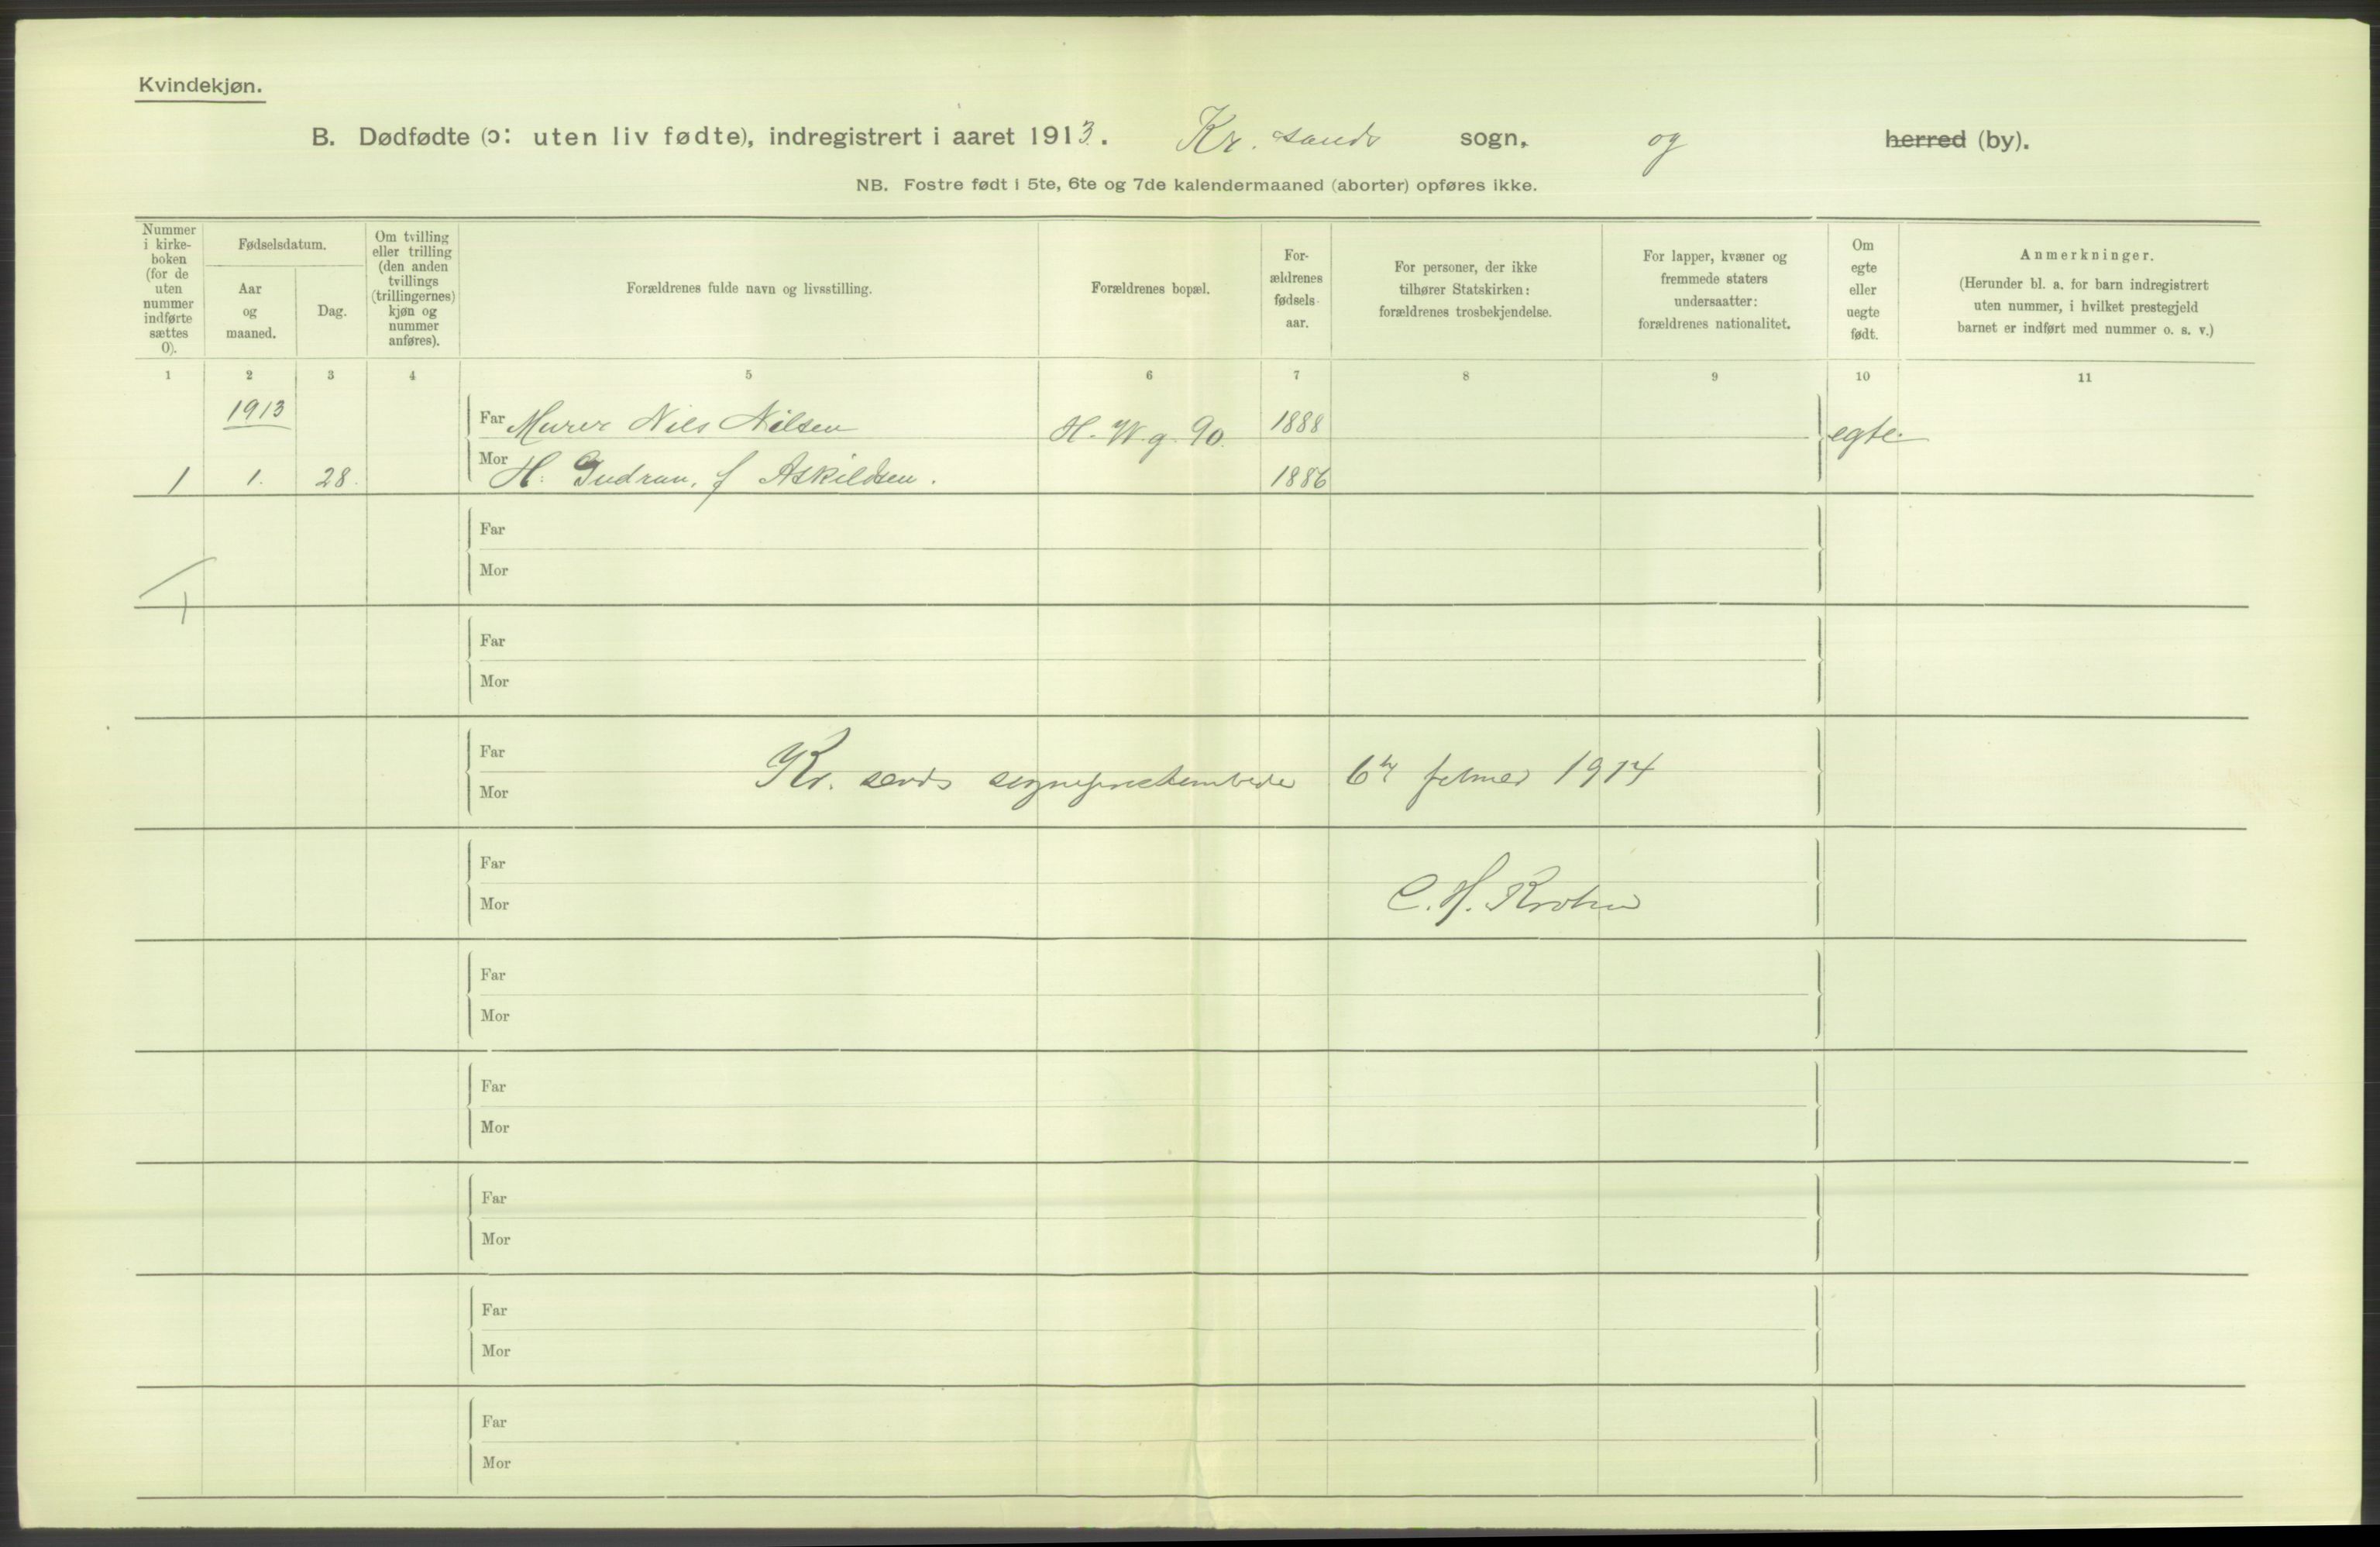 Kvindekjøn.
B. Dødfødte (ɔ: uten liv fødte), indregistrert i aaret 1913. Kr. sands sogn, og herred (by).
NB. Fostre født i 5te, 6te og 7de kalendermaaned (aborter) opføres ikke.
Nummer
i kirke-
boken
(for de
uten
nummer
indførte
sættes
0).
Fødselsdatum.
Aar
og
maaned.
Dag.
Om tvilling
eller trilling
(den anden
tvillings
(trillingernes)
kjøn og
nummer
anføres).
Forældrenes fulde navn og livsstilling.
Forældrenes bopæl.
For-
ældrenes
fødsels-
aar.
For personer, der ikke
tilhører Statskirken:
forældrenes trosbekjendelse.
For lapper, kvæner og
fremmede staters
undersaatter:
forældrenes nationalitet.
Om
egte
eller
uegte
født.
Anmerkninger.
(Herunder bl. a. for barn indregistrert
uten nummer, i hvilket prestegjeld
barnet er indført med nummer o. s. v.)
1 2 3 4 5 6 7 8 9 10 11
1913
Far Murer Nils Nilsen H. W. g. 90. 1888 egte.
1 1. 28. Mor H. Gudrun, f Askildsen. 1886
Far
Mor
Far
Mor
Far
Kr. sands sogneprestembede 6te februar 1914
Mor
Far
C. H. Krohn
Mor
Far
Mor
Far
Mor
Far
Mor
Far
Mor
Far
Mor